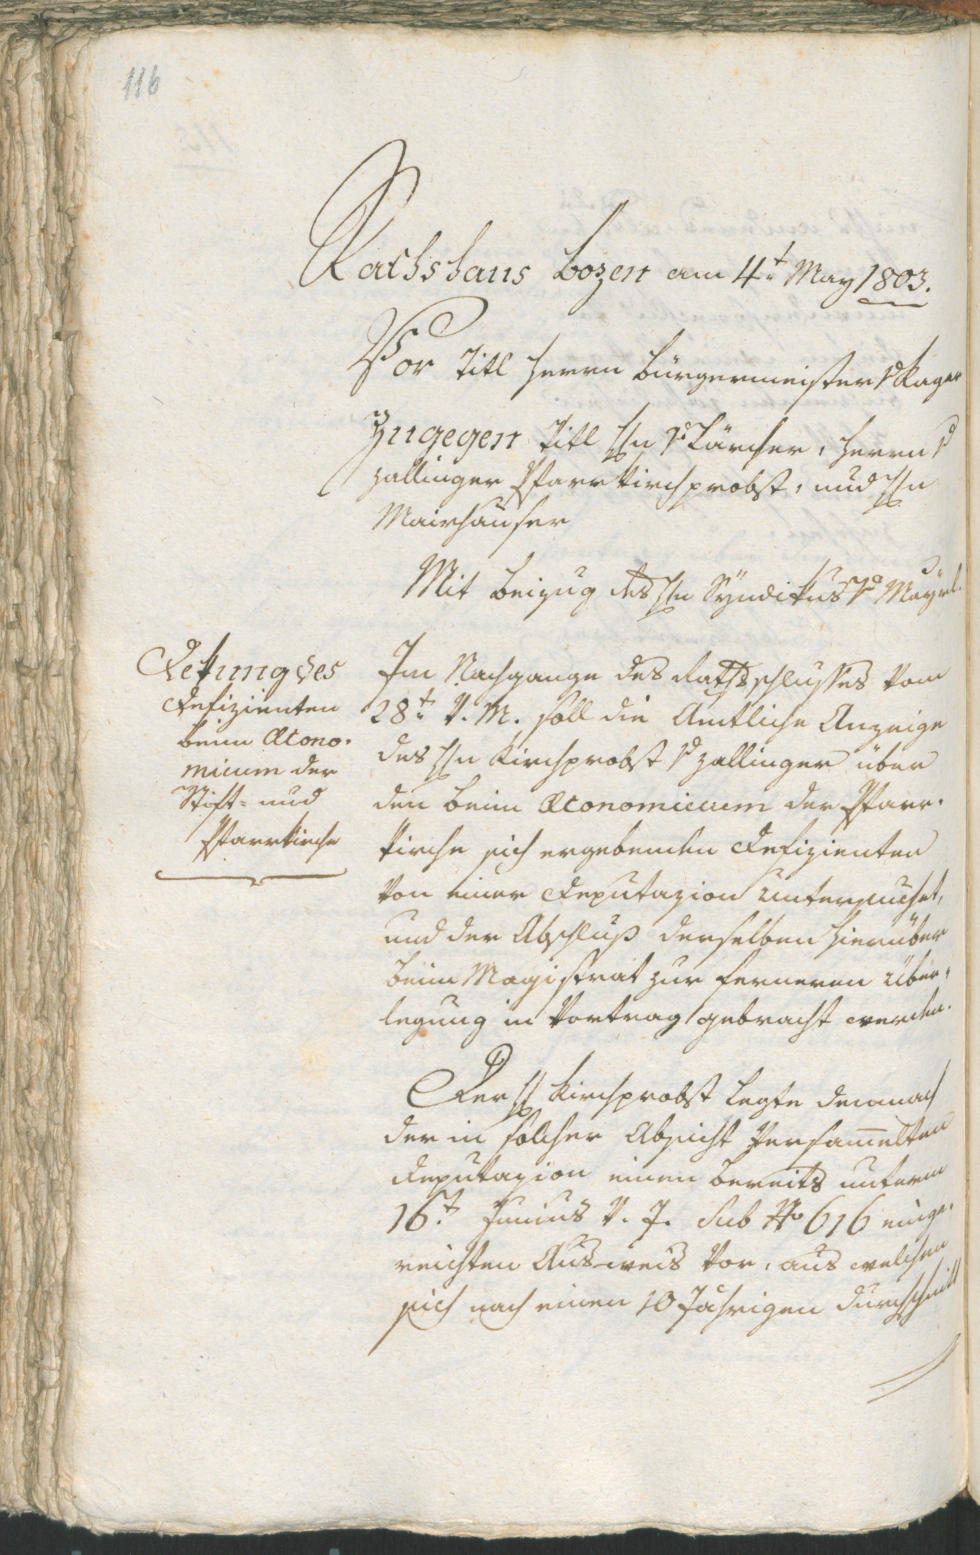 116
Rathshaus Bozen am 4t. May 1803.
Vor Titl Herrn Bürgermeister v Kager
Zugegen Titl Hn v Lärcher, Herrn v
Zallinger Pfarrkirchprobst, und Hn
Mairhauser
Mit beizug des Hn Syndikus Dr Mayrl.
Dekung des
Defizienten
beim Œcono-
micum der
Stift- und
Pfarrkirche
Im Nachgange des Rathsschlusses vom
28t. v. M. soll die Amtliche Anzeige
des Hn Kirchprobst v Zallinger über
den beim Œconomicum der Pfarr-
kirche sich ergebenden Defizienten
von einer Deputazion untersuchet,
und der Abschluß derselben hierüber
beim Magistrat zur ferneren Über-
legung in Vortrag gebracht werden.
Der H Kirchprobst legte demnach
der in solcher Absicht versam̅elten
Deputazion einen bereits unterm
16t. Junius v. J. sub No 616 einge-
reichten Ausweis vor, aus welchen
sich nach einen 10 Jährigen Durchschnitt